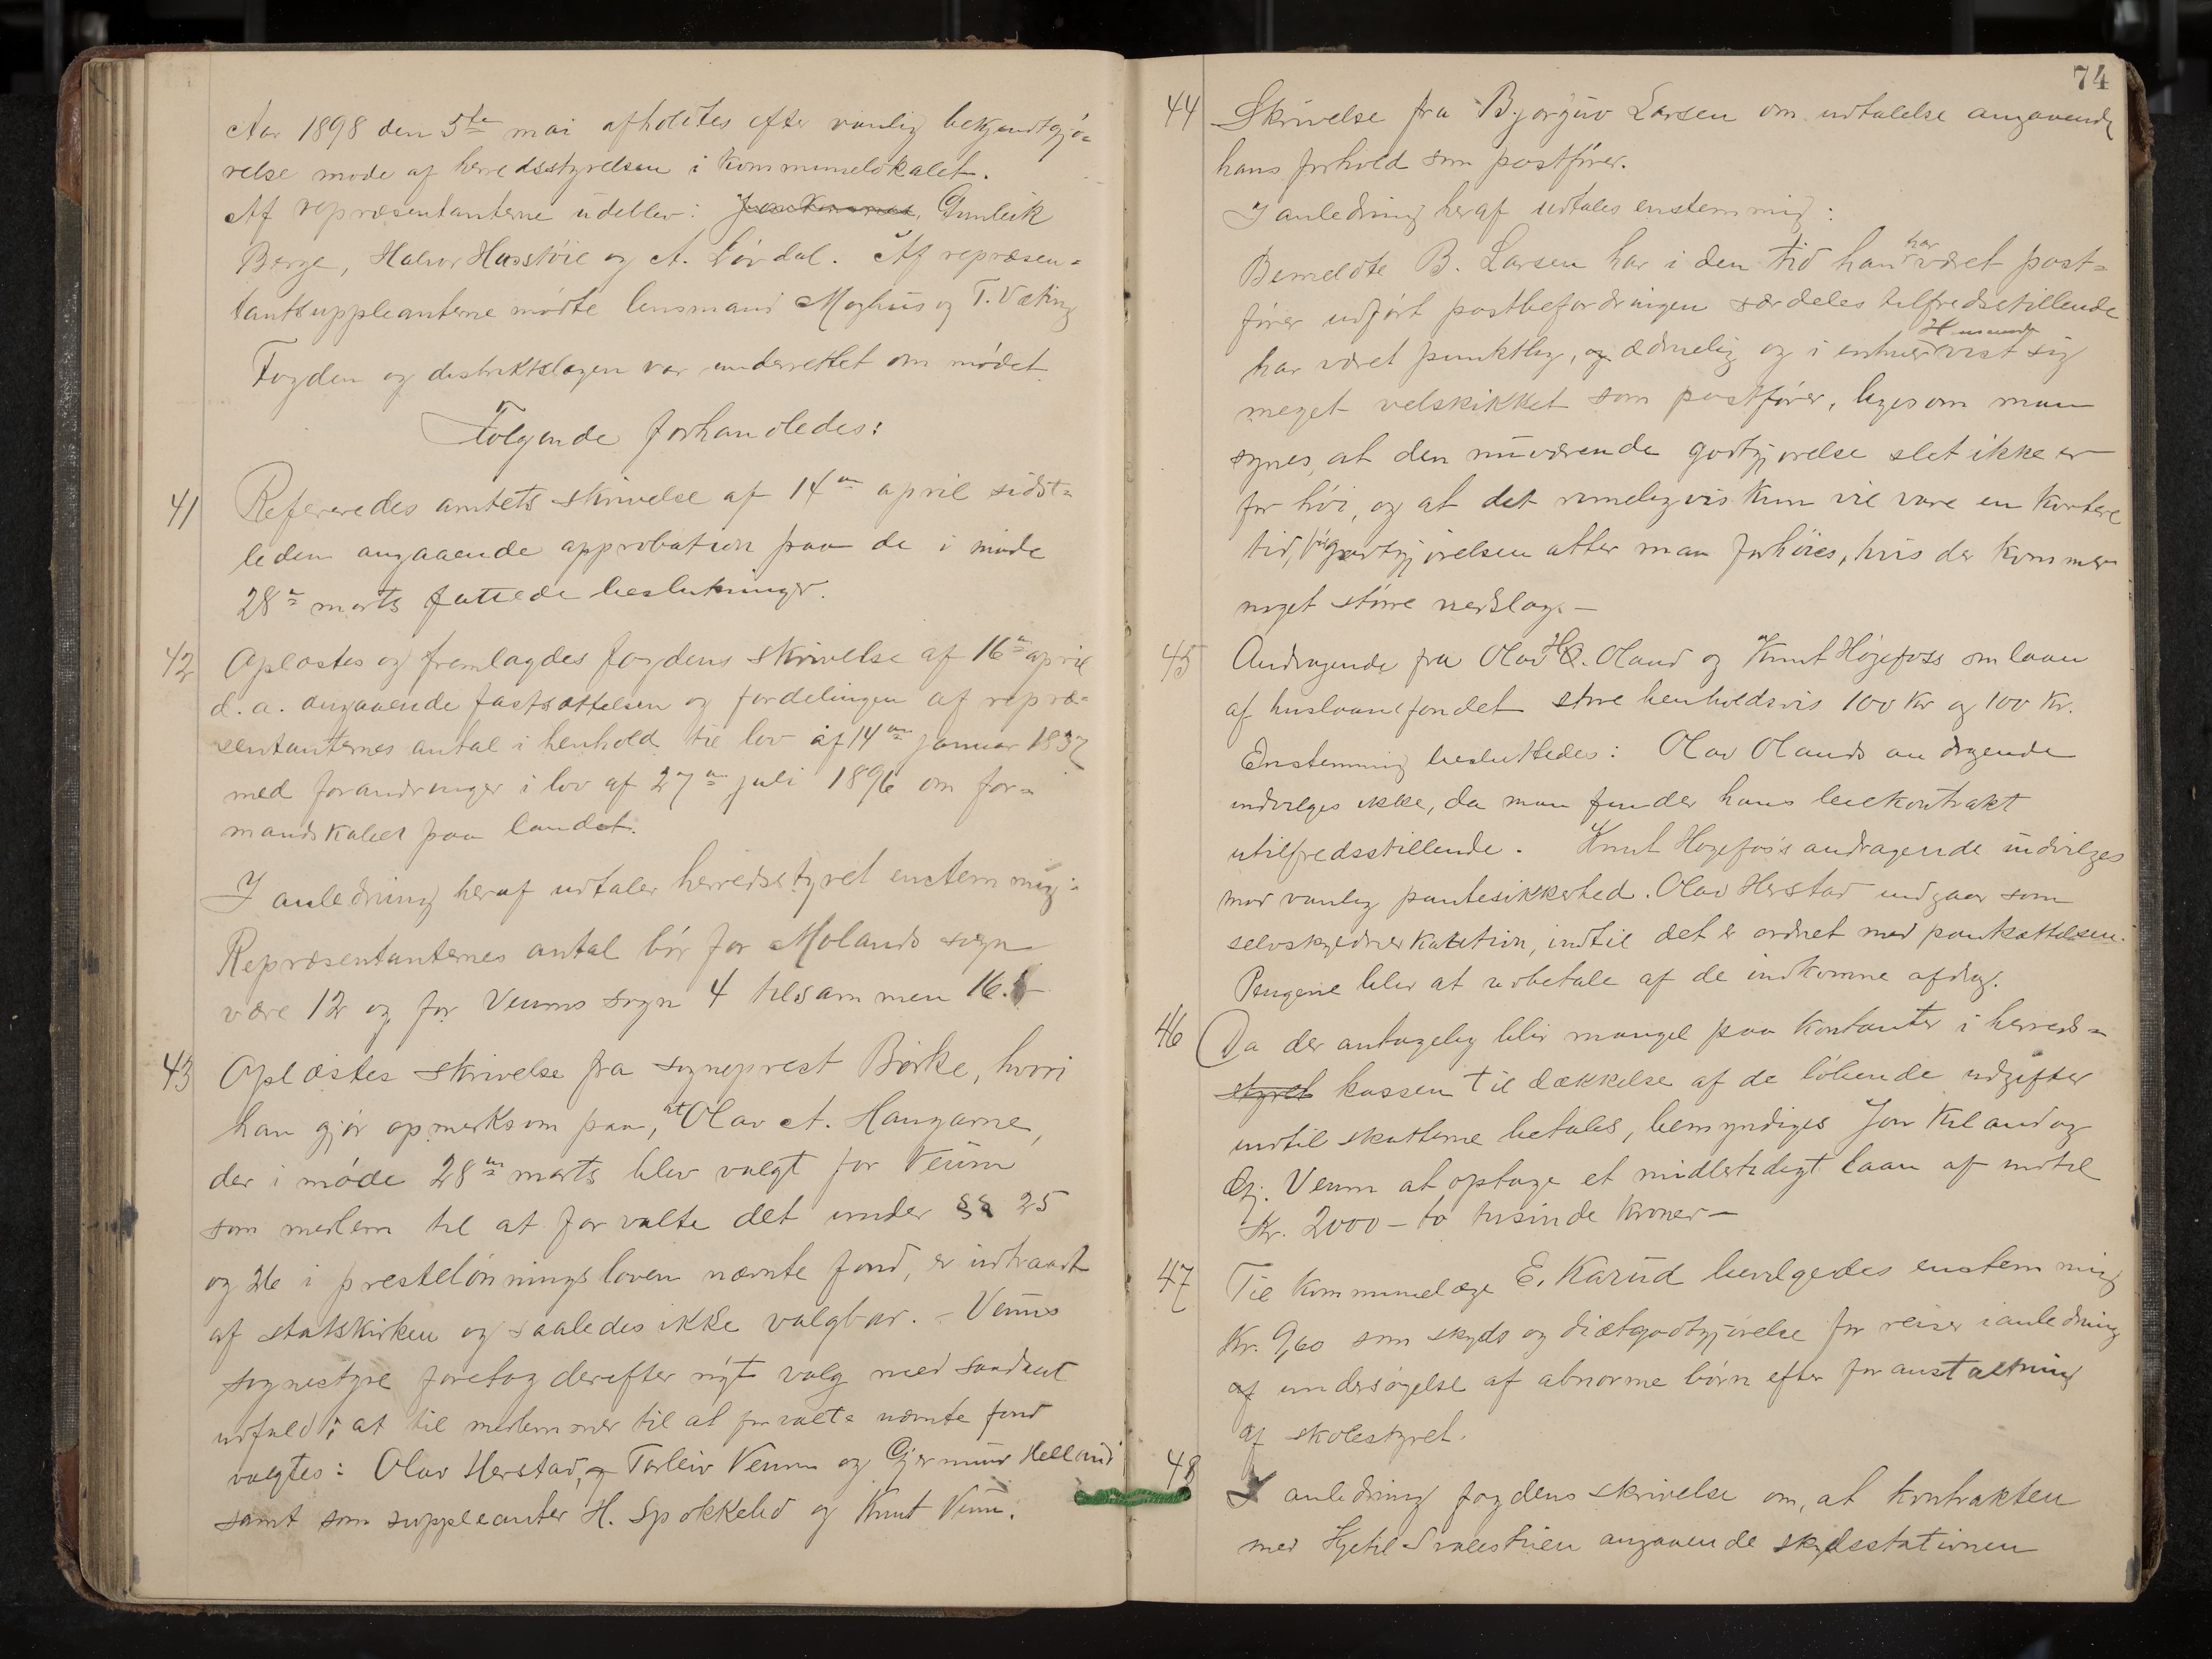 Aar 1898 den 5te mai afholdtes efter vanlig bekjendtgjø=
relse møde af herredsstyrelsen i kommunelokalet.
Af repræsentanterne udeblev: Gunleik
Berge, Halvor Husstøil og A. Lövdal. Af repræsen=
tantsuppleanterne mødte lensmand Moghus og T. Væting
Fogden og distriktslægen var underrettet om mødet.
Følgende forhandledes:
41 Refereredes amtets skrivelse af 14de april sidst=
leden angaaende approbation paa de i møde
28de marts fattede beslutninger.
42 Oplæstes og fremlagdes fogdens skrivelse af 16de april
d. a. angaaende fastsættelsen og fordelingen af repræ=
sentanternes antal i henhold til lov af 14de januar 1837
med forandringer i lov af 27de juli 1896 om for=
mandskaber paa landet.
I anledning heraf udtaler herredsstyret enstemmig:
Repræsentanternes antal bør for Molands sogn
være 12 og for Veums sogn 4 tilsammen 16.
43 Oplæstes skrivelse fra sogneprest Børke, hvori
han gjør opmerksom paa, at Olav A. Haugarne,
der i møde 28de marts blev valgt for Veum
som medlem til at forvalte det under §§ 25
og 26 i presteløningsloven nævnte fond, er udtraadt
af statskirken og saaledes ikke valgbar. – Veums
sognestyre foretog derefter nyt valg med saadant
udfald, at til medlemmer til at forvalte nævnte fond
valgtes: Olav Herstad, Torleiv Veum og Gjermund Helland
samt som suppleanter H. Spokkelid og Knut Veum.
74
44 Skrivelse fra Bjørguv Larsen om udtalelse angaaende
hans forhold som postfører.
I anledning heraf udtales enstemmig:
Bemeldte B. Larsen har i den tid han har været post=
fører udført postbefordringen særdeles tilfredsstillende
har været punktlig, og ædruelig og i enhver Henseende vist sig
meget velskikket som postfører, ligesom man
synes, at den nuværende godtgjørelse slet ikke er
for høi, og at det rimeligvis kun vil vare en kortere
tid, før godtgjørelsen atter maa forhøies, hvis der kommer
noget større nedslag. –
45 Andragende fra Olav H. Oland og Knut Høgefoss om laan
af huslaanefondet store henholdsvis 100 kr og 100 kr.
Enstemmig besluttedes: Olav Olands andragende
indvilges ikke, da man finder hans leiekontrakt
utilfredsstillende. Knut Høgefos's andragende indvilges
mod vanlig pantesikkerhed. Olav Herstad indgaar som
selvskyldnerkaution, indtil det er ordnet med pantsættelsen.
Pengene blir at udbetale af de indkomne afdrag.
46 Da der antagelig blir mangel paa kontanter i herreds=
styret kassen til dækkelse af de løbende udgifter
indtil skatterne betales, bemyndiges Jon Kiland og
Gj. Veum at optage et midlertidigt laan af indtil
Kr. 2000 – to tusinde kroner –
47 Til kommunelæge E. Karud bevilgedes enstemmig
Kr. 9,60 som skyds og diætgodtgjørelse for reiser i anledning
af undersøgelse af abnorme børn efter foranstaltning
af skolestyret.
48 I anledning fogdens skrivelse om, at kontrakten
med Kjetil angaaende skydsstationen